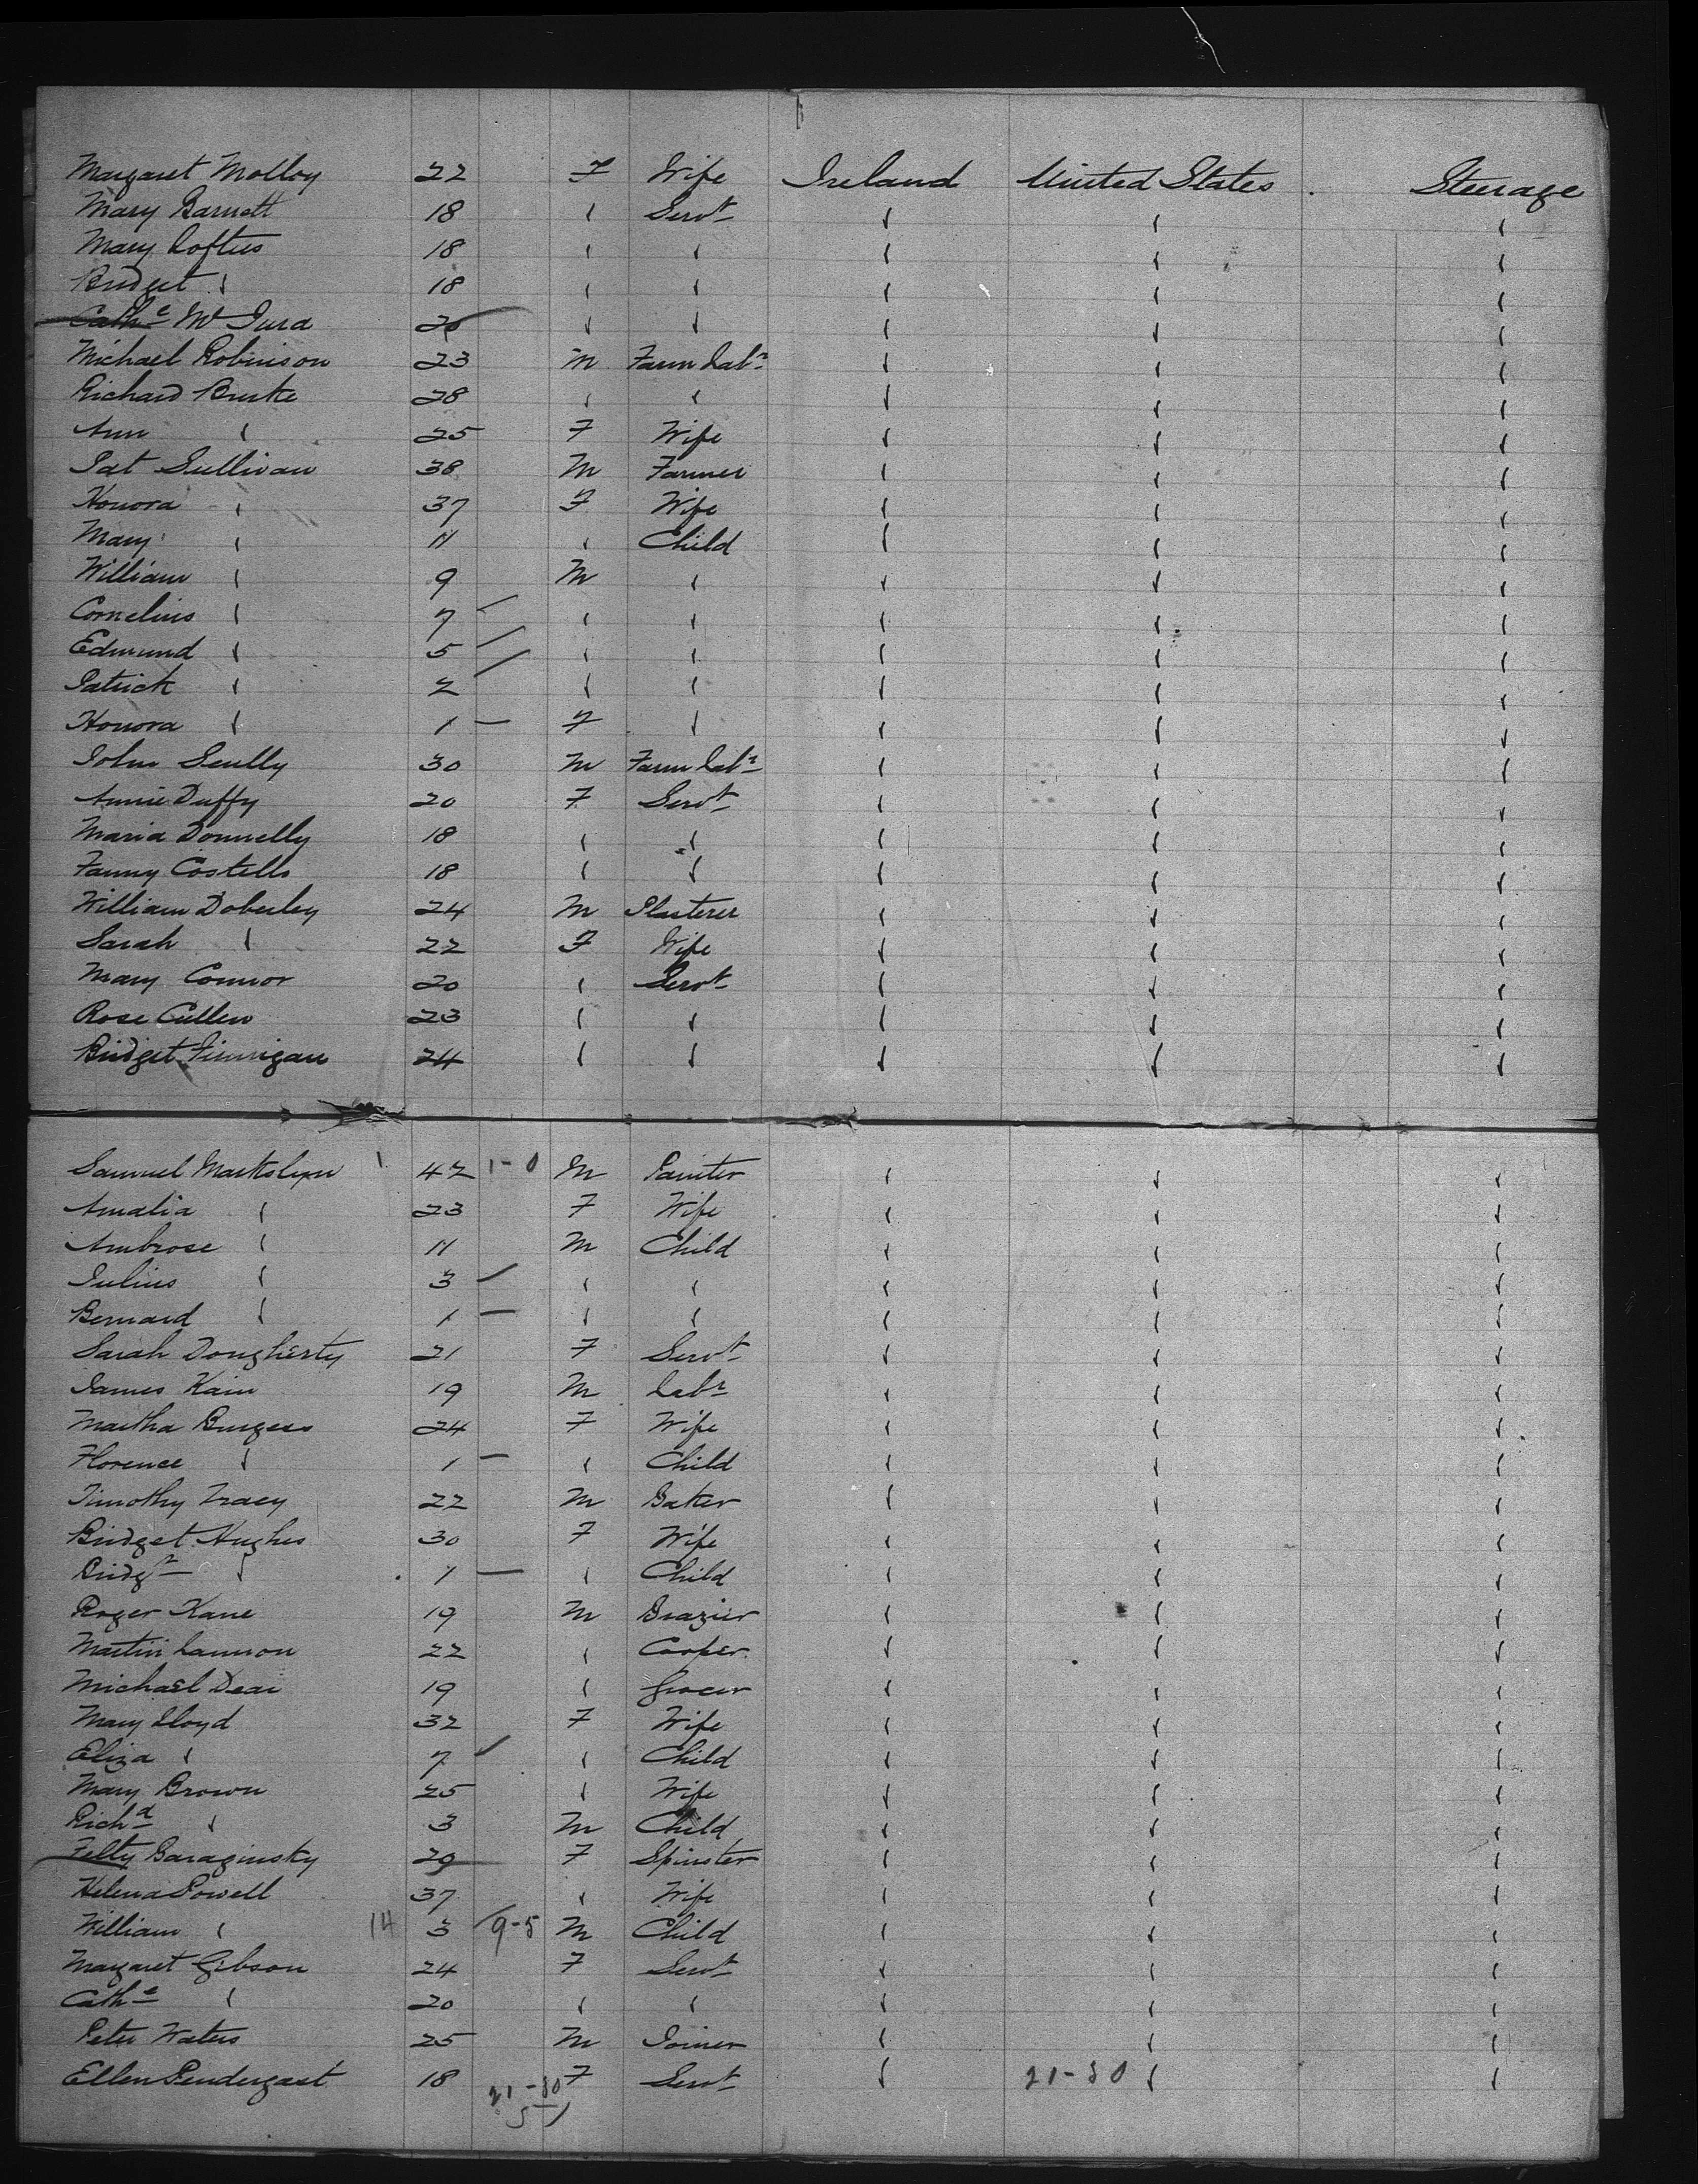 Margaret Molloy 22 F Wife Ireland United States Steerage
Mary Barnett 18 " Servt " " "
Mary Loftus 18 " " " " "
Bridget " 18 " " " " "
Cathe Mc 20 " " " " "
Michael Robinson 23 M Farm Labr " " "
Richard Burke 28 " " " " "
Ann " 25 F Wife " " "
Pat Sullivan 38 M Farmer " " "
Honora " 37 F Wife " " "
Mary " 11 " Child " " "
William " 9 M " " " "
Cornelius " 7 / " " " " "
Edmund " 5 / " " " " "
Patrick " 2 / " " " " "
Honora " 1 — F " " " "
John Scully 30 M Farm Labr " " "
Annie Duffy 20 F Servt " " "
Maria Donnelly 18 " " " " "
Fanny Costello 18 " " " " "
William Doberley 24 M Plasterer " " "
Sarah " 22 F Wife " " "
Mary Connor 20 " Servt " " "
Rose Cullen 23 " " " " "
Bridget Finnigan 24 " " " " "
Samuel 42 1-0 M Painter " " "
Amalia " 23 F Wife " " "
Ambrose " 11 M Child " " "
Julius " 3 / " " " " "
Bernard " 1 — " " " " "
Sarah Dougherty 21 F Servt " " "
James Kain 19 M Labr " " "
Martha Burgess 24 F Wife " " "
Florence " 1 — " Child " " "
Timothy Tracy 22 M Baker " " "
Bridget Hughes 30 F Wife " " "
Bridgt " 1 — " Child " " "
Roger Kane 19 M Brazier " " "
Martin Lannon 22 " Cooper " " "
Michael 19 " Grocer " " "
Mary Lloyd 32 F Wife " " "
Eliza " 7 / " Child " " "
Mary Brown 25 " Wife " " "
Richd " 3 M Child " " "
Garaginsky 29 F Spinster " " "
Helena Powell 37 " Wife " " "
William " 14 3 / 9-5 M Child " " "
Margaret Gibson 24 F Servt " " "
Cathe " 20 " " " " "
Peter Waters 25 M Joiner " " "
Ellen Pendergast 18 F Servt " 21-30 " "
21-30
51